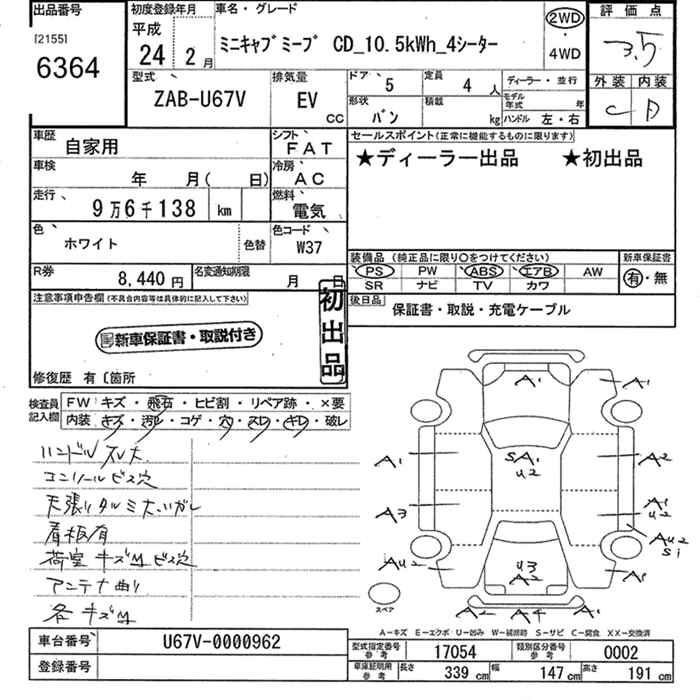 出品番号
[2155]
6364
初度登録年月
平成
24年 2月
車名・グレード
ミニキャブミーブ CD_10.5kWh_4シーター
2WD
・
4WD
評価点
3.5
外装 内装
C D
型式
ZAB-U67V
排気量
EV
CC
ドア 5
定員 4人
ディーラー・並行
形状 バン
積載 kg
モデル年式 年
ハンドル 左・右
車歴 自家用
シフト FAT
車検 年 月( 日)
冷房 AC
走行 9万6千138 km
燃料 電気
色 ホワイト
色替
色コード W37
R券 8,440円
名変通知期限 月 日
セールスポイント(正常に機能するものに限ります)
★ディーラー出品 ★初出品
装備品 (純正品に限り○をつけてください)
新車保証書
PS PW ABS エアB AW
SR ナビ TV カワ
有・無
後日品 保証書・取説・充電ケーブル
注意事項申告欄(不具合内容等は具体的に記入して下さい)
新車保証書・取説付き
初出品
修復歴 有〔箇所
検査員記入欄
FW キズ・飛石・ヒビ割・リペア跡・×要
内装 キズ・汚レ・コゲ・穴・スレ・キレ・破レ
ハンドル スレ大
コンソールビス穴
天張りタルミ大、ハガレ
看板有
荷室キズM ビス穴
アンテナ曲り
各キズM
A1 A1
A1 SA1 U2 A2
A3 A1 U2
AU2 AU2 S1
U3 A2 A1
A2 A4 A1
スペア
A-キズ E-エクボ U-凹み W-補修跡 S-サビ C-腐食 XX-交換済
車台番号 U67V-0000962
登録番号
型式指定番号 参考 17054
類別区分番号 参考 0002
車庫証明用 参考
長さ 339 cm
幅 147 cm
高さ 191 cm